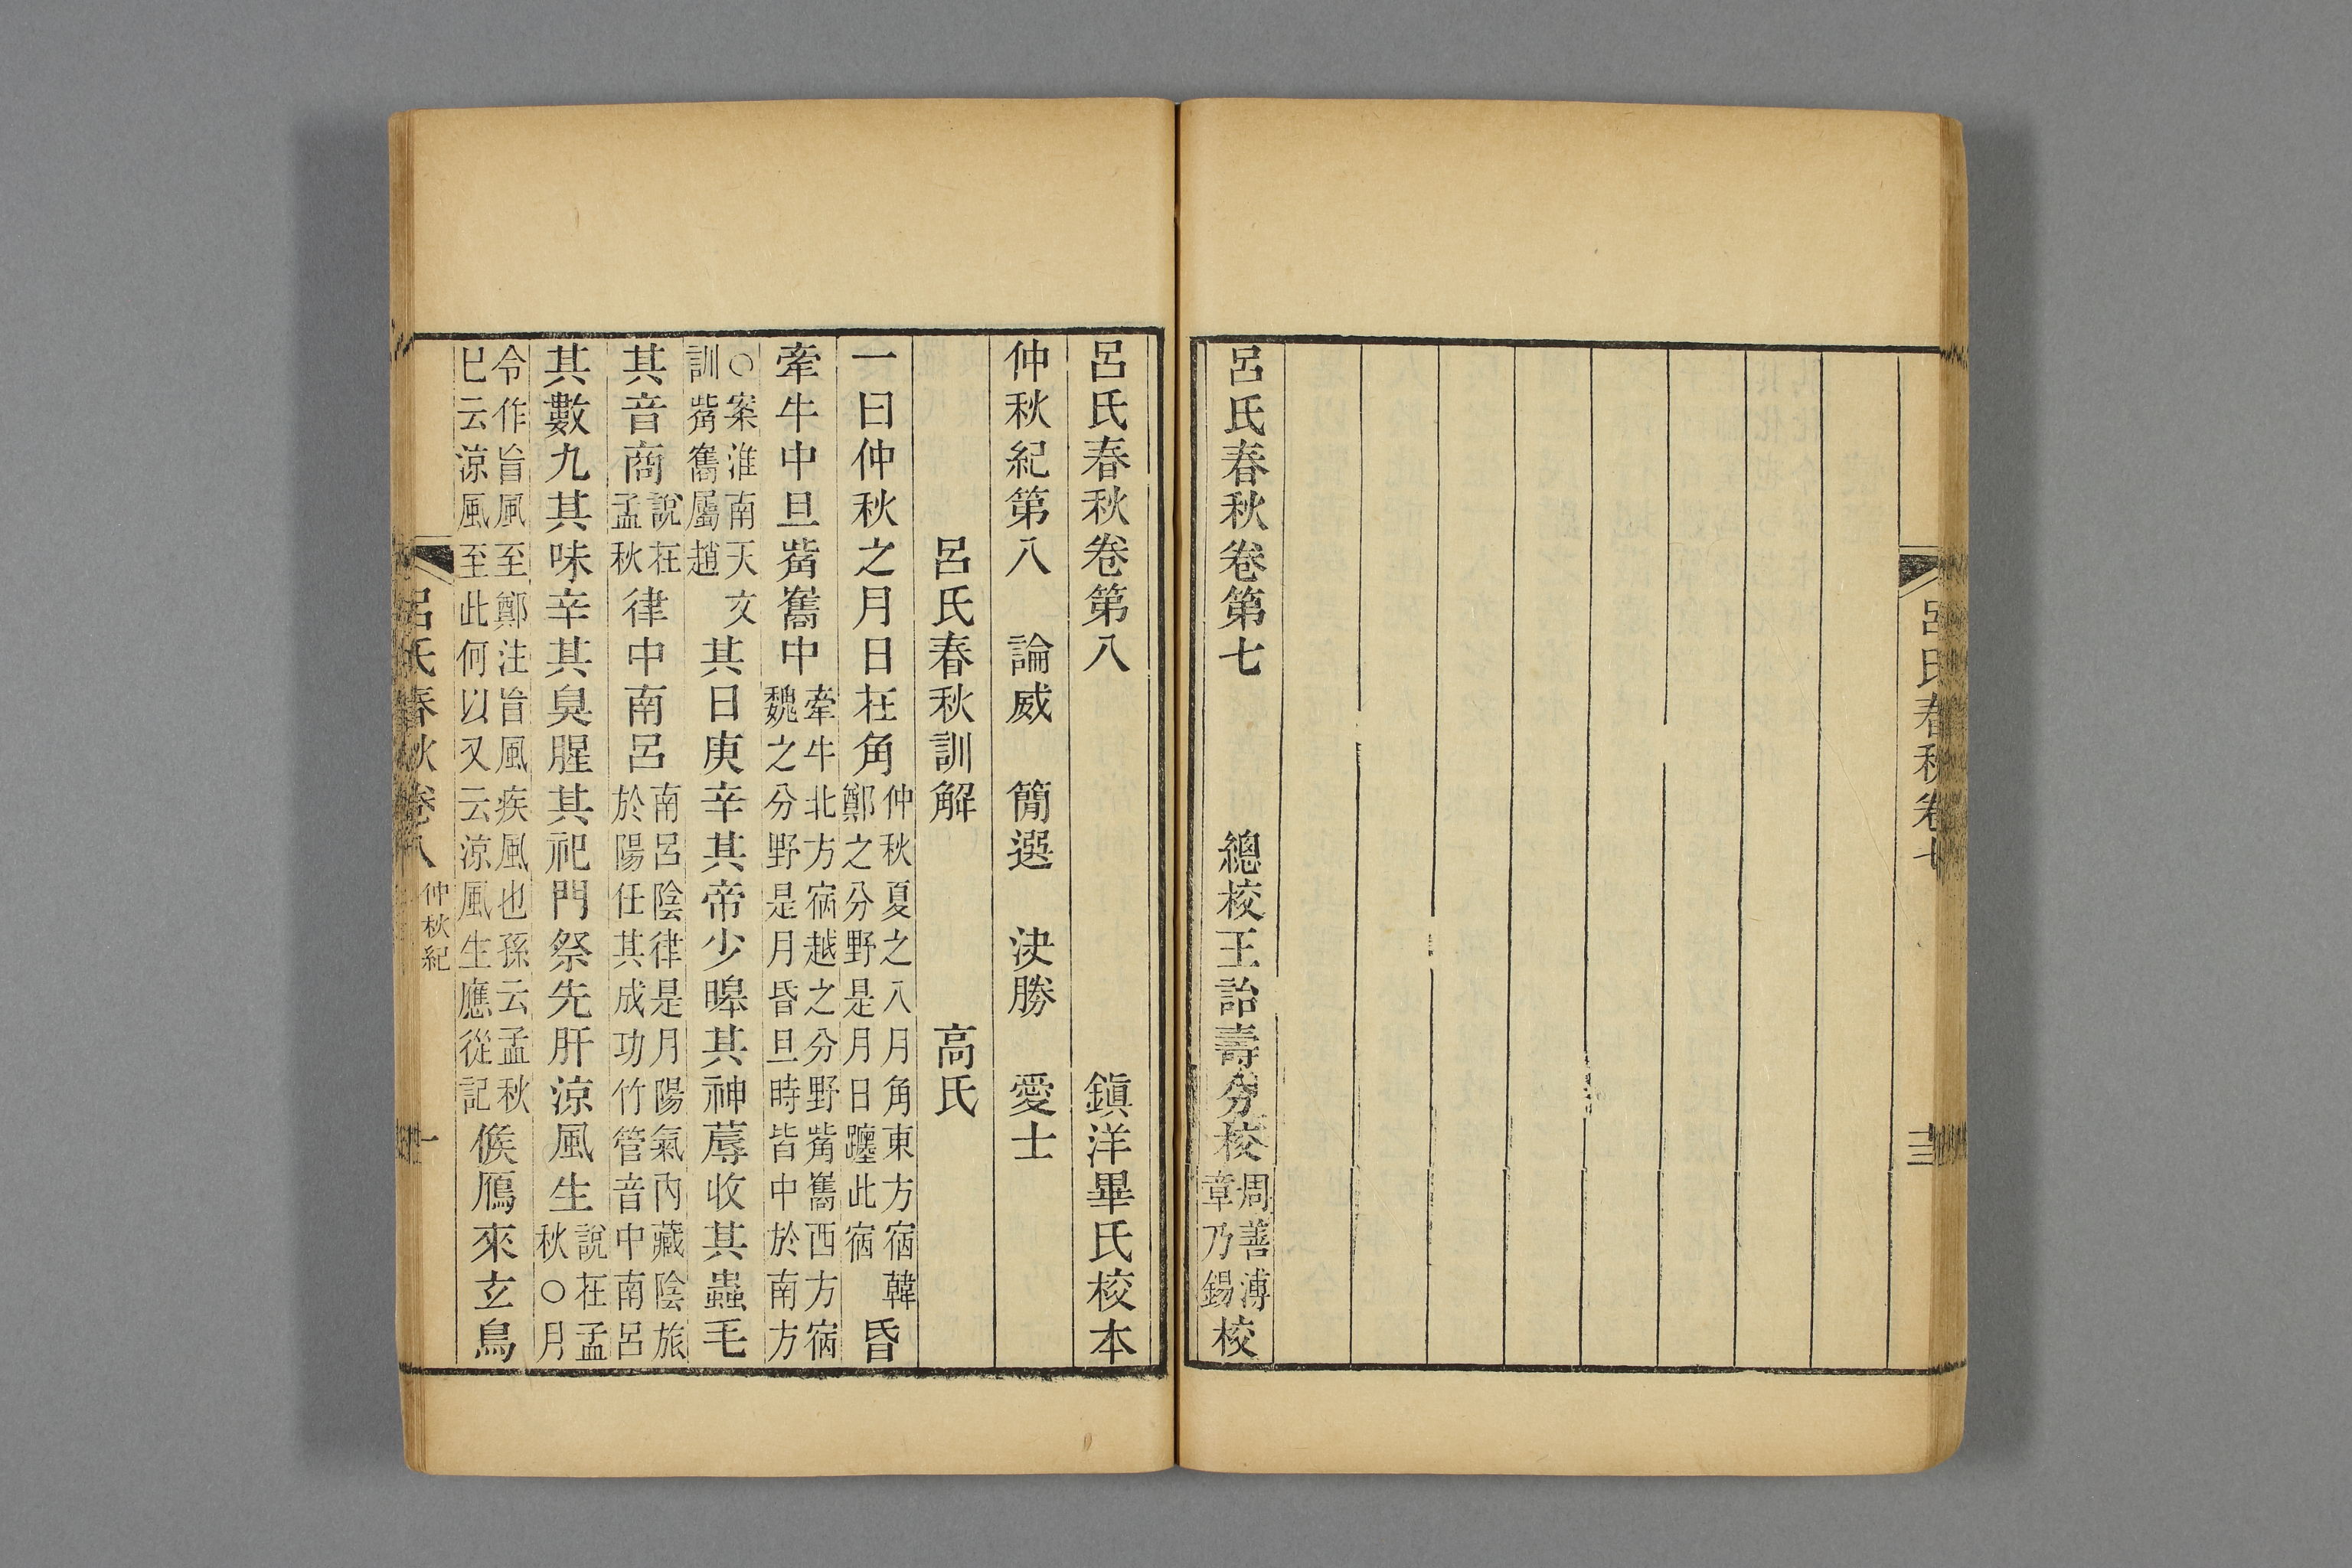 呂氏春秋卷七
十三
呂氏春秋卷第七 總校王詒壽分校周善溥章乃錫校
呂氏春秋卷第八 鎭洋畢氏校本
仲秋紀第八 論威 簡選 決勝 愛士
呂氏春秋訓解 高氏
一曰仲秋之月日在角仲秋夏之八月角東方宿韓鄭之分野是月日躔此宿昏
牽牛中旦觜嶲中牽牛北方宿越之分野觜嶲西方宿魏之分野是月昏旦時皆中於南方
○案淮南天文訓觜嶲屬趙其日庚辛其帝少皞其神蓐收其蟲毛
其音商說在孟秋律中南呂南呂陰律是月陽氣內藏陰旅於陽任其成功竹管音中南呂
其數九其味辛其臭腥其祀門祭先肝涼風生說在孟秋○月
令作盲風至鄭注盲風疾風也孫云孟秋已云涼風至此何以又云涼風生應從記候鴈來玄鳥
呂氏春秋卷八 仲秋紀
一